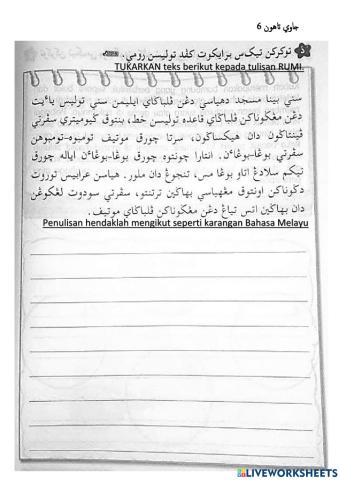 جاوي تاهون 6
توكركن تيک‌س برايكوت کڤد توليسن رومي.
TUKARKAN teks berikut kepada tulisan RUMI.
سني بينا مسجد دهياسي دڠن ڤلباڬاي ايليمن سني توليس ياءيت
دڠن مڠݢوناكن ڤلباڬاي قاعده توليسن خط، بنتوق ݢيوميتري سڤرتي
ڤينتاݢون دان هيكساݢون، سرتا چورق موتيف تومبوه-تومبوهن
سڤرتي بوڠا-بوڠاءن. انتارا چونتوه چورق بوڠا-بوڠاءن اياله چورق
تمڤوق سلادڠ اتاو بوڠا مس، تنجوڠ دان ملور. هياسن عرابيس توروت
دݢوناكن اونتوق مڠهياسي بهاݢين ترتنتو، سڤرتي سودوت لڠكوڠن
دان بهاݢين اتس تياڠ دڠن مڠݢوناكن ڤلباݢاي موتيف.
Penulisan hendaklah mengikut seperti karangan Bahasa Melayu
LIVEWORKSHEETS